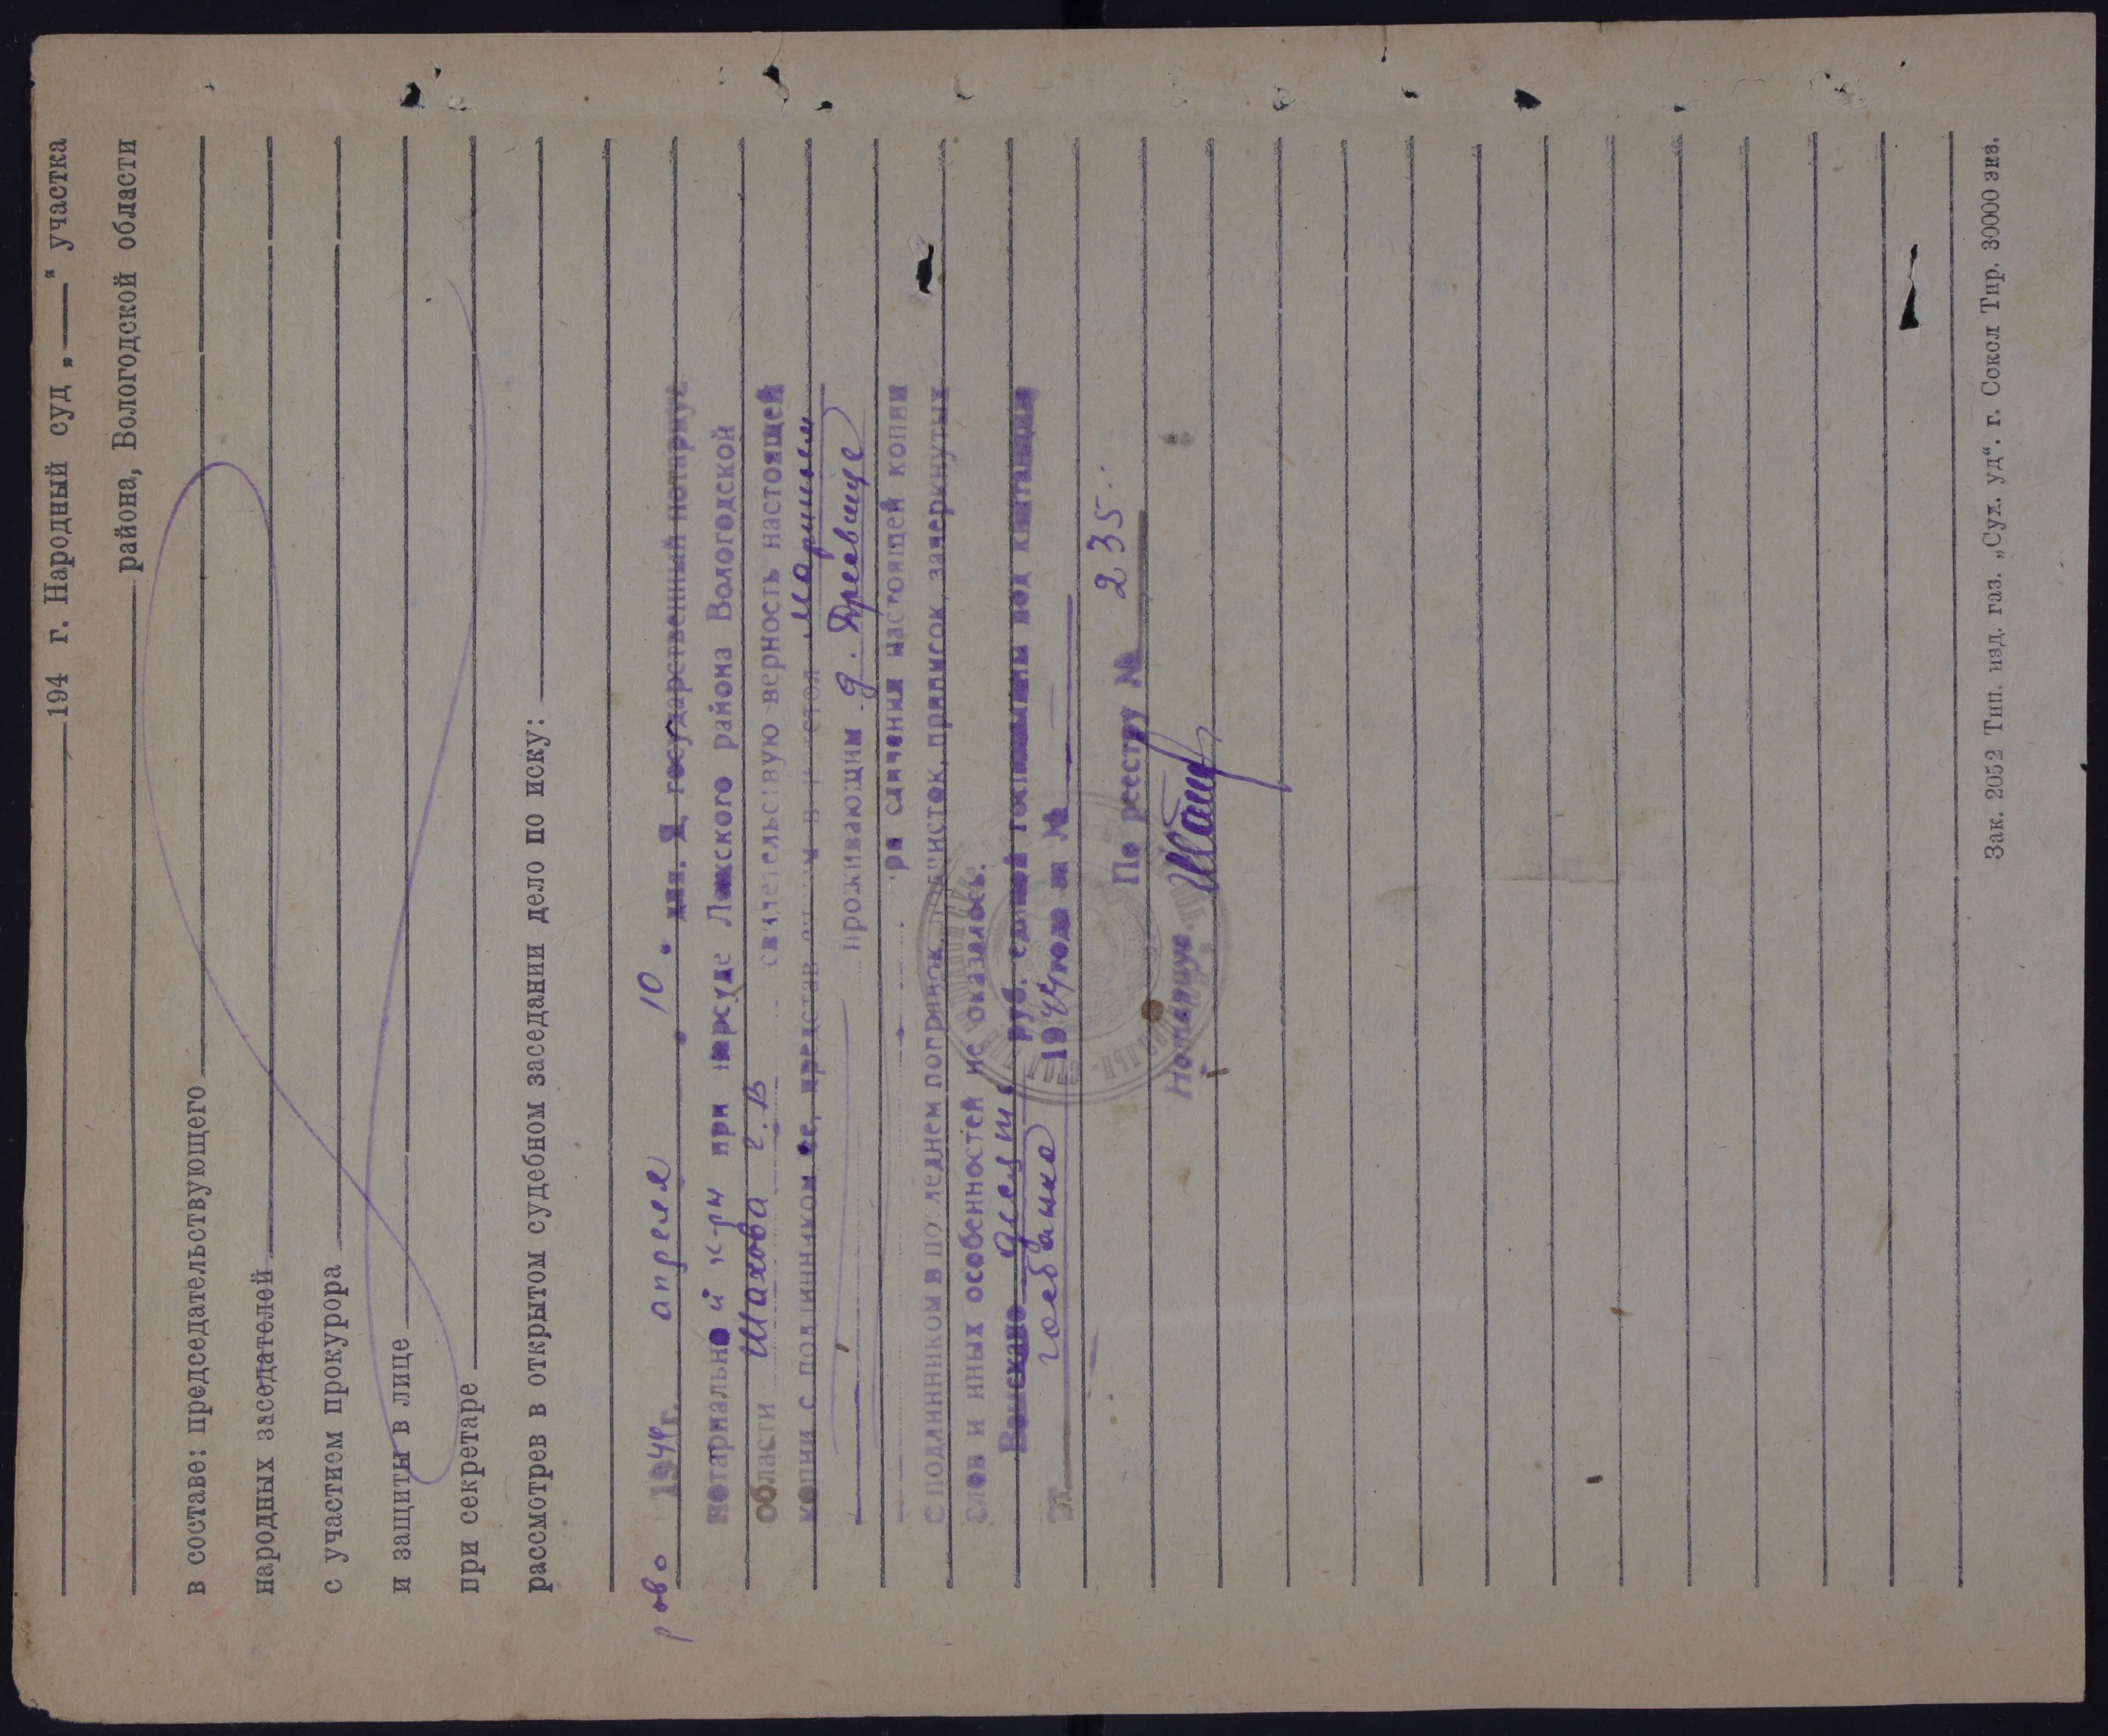 194 г. Народный суд „ “ участка
района, Вологодской области
в составе: председательствующего
народных заседателей
с участием прокурора
и защиты в лице
при секретаре
рассмотрев в открытом судебном заседании дело по иску:
1944 г. апреля 10 дня. Я, государственный нотариус
нотариальной к-ры при нарсуде Лежского района Вологодской
области Шахова г. В свидетельствую верность настоящей
копии с подлинником ее, представленным в н/стол
проживающим д.
при сличении настоящей копии
с подлинником в последнем поправок, подчисток, приписок, зачеркнутых
слов и иных особенностей не оказалось.
Взыскано руб. единой госпошлины под квитанцию
за 1944 года за №
По реестру № 235.
Нотариус
Зак. 2052 Тип. изд. газ. „Сух. уд“. г. Сокол Тир. 30000 экз.